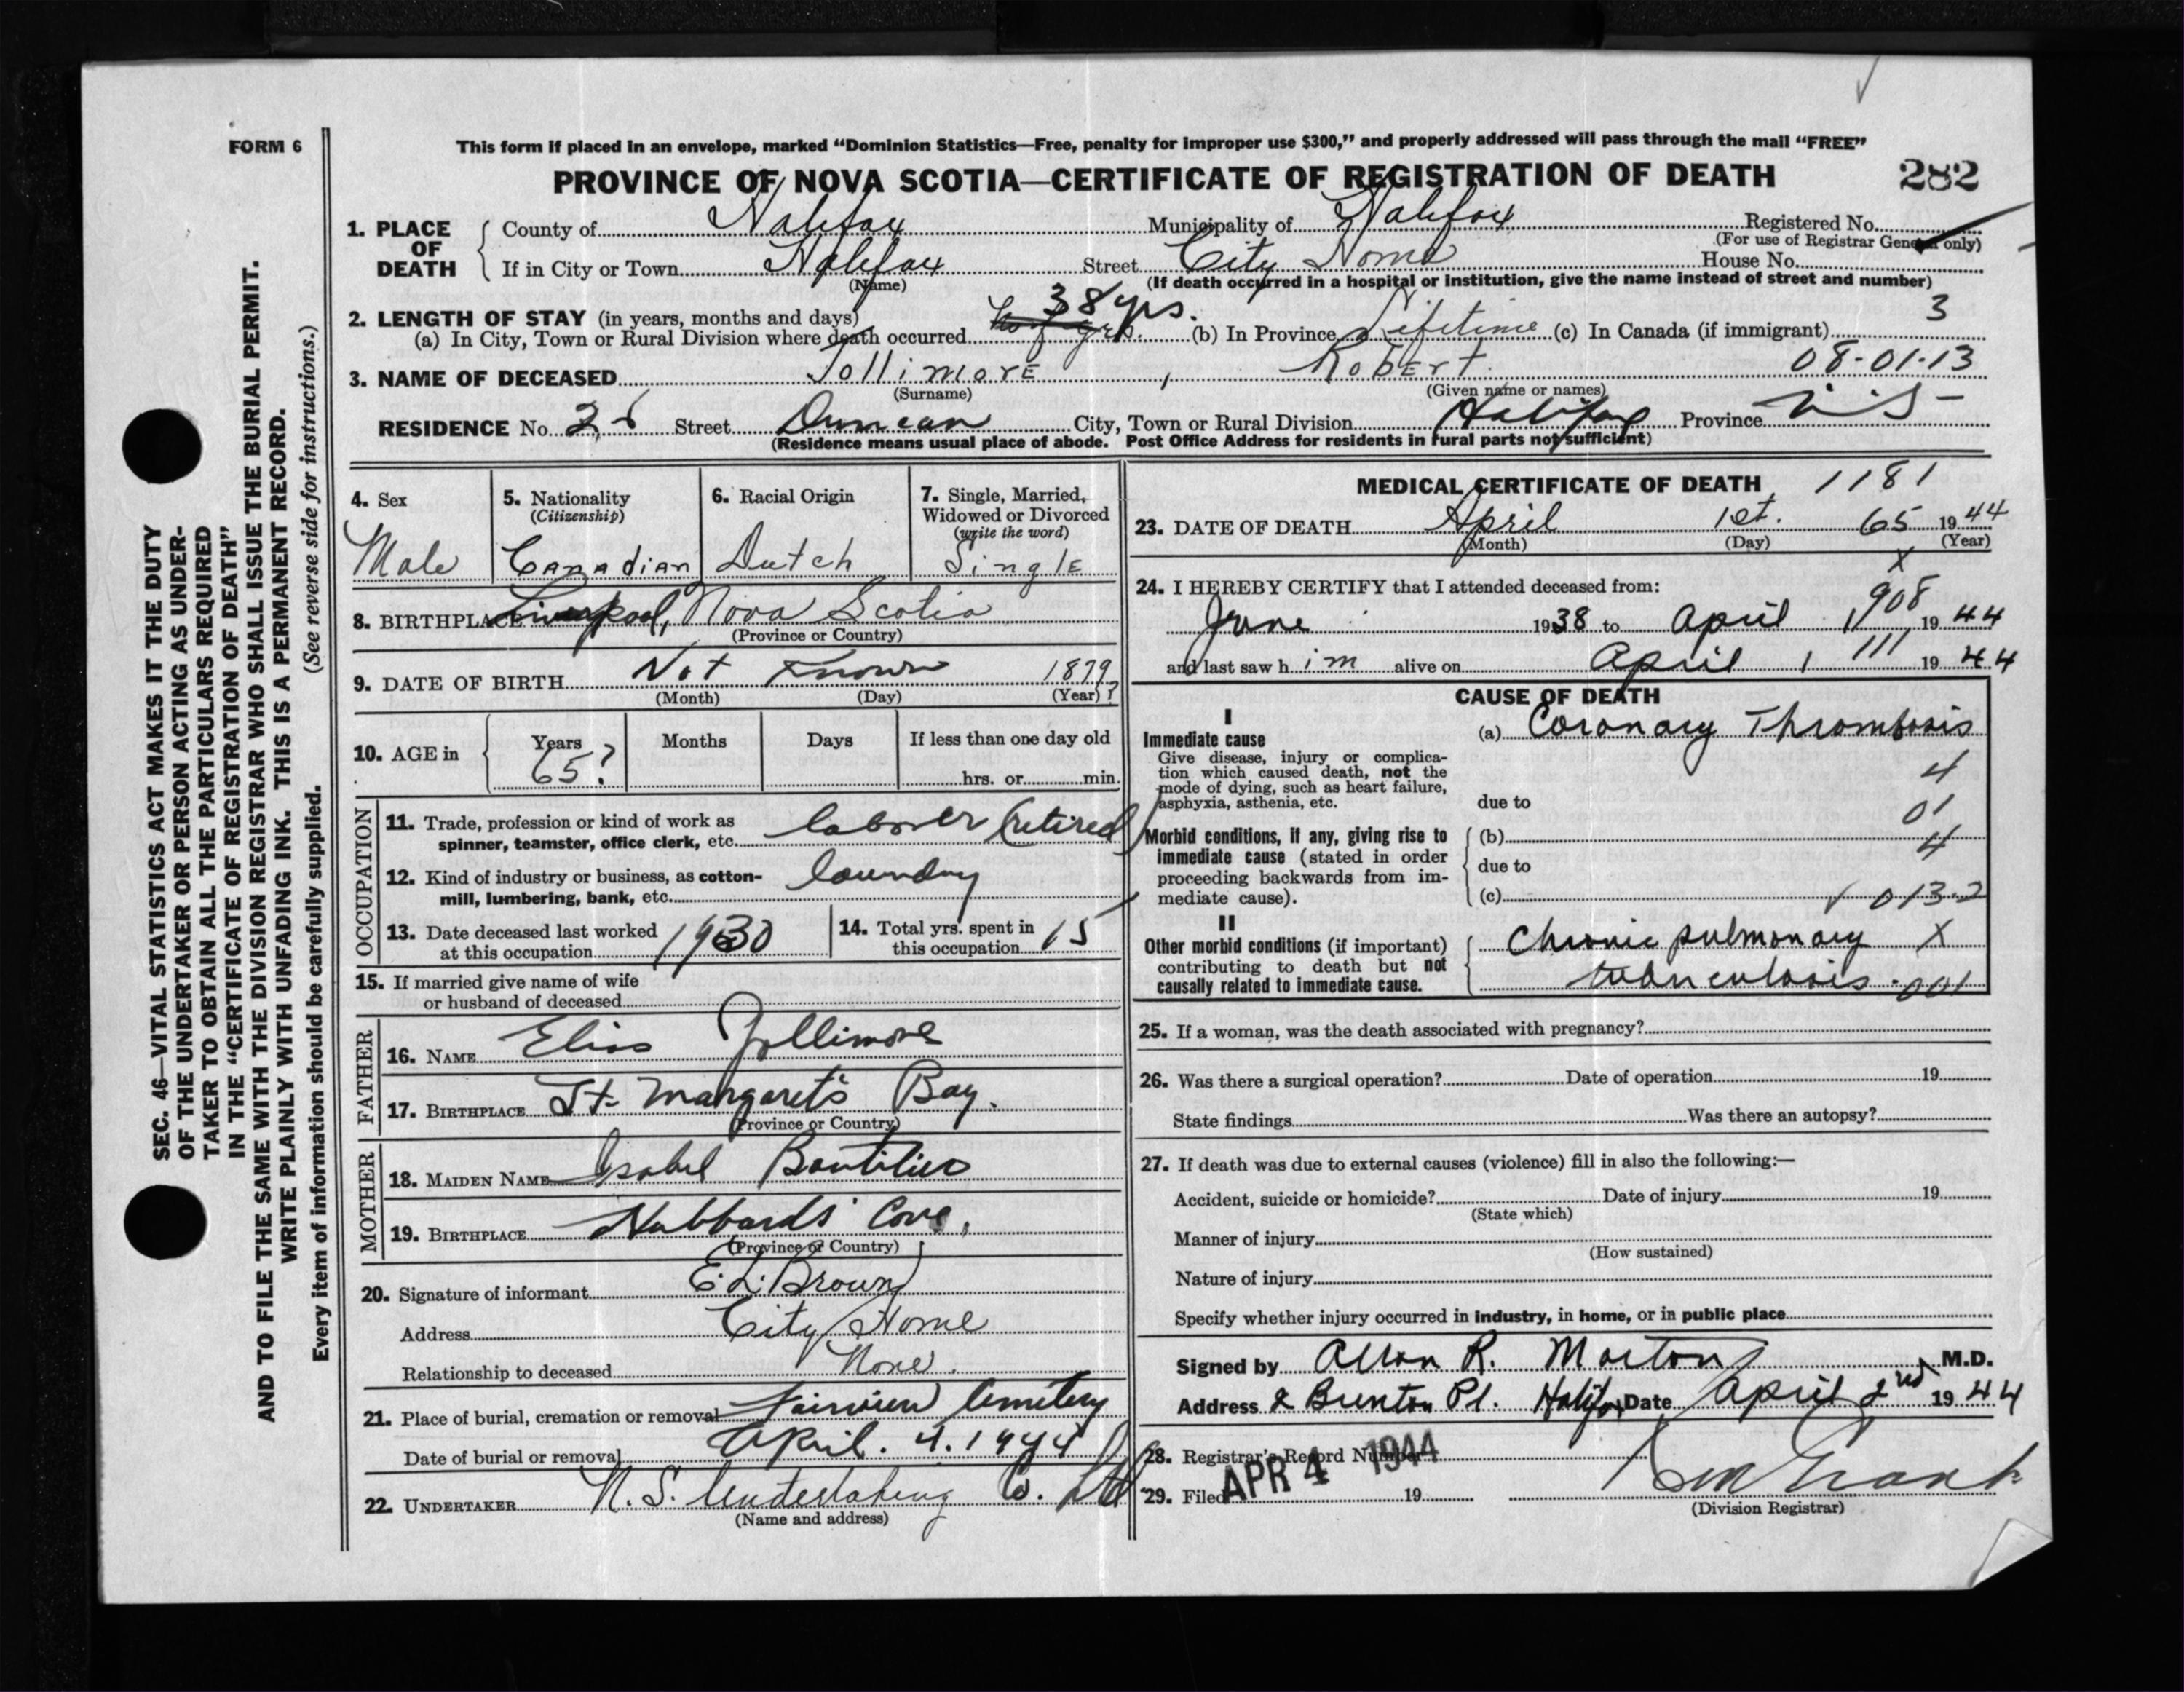 FORM 6
This form if placed in an envelope, marked "Dominion Statistics—Free, penalty for improper use $300," and properly addressed will pass through the mail "FREE"
PROVINCE OF NOVA SCOTIA—CERTIFICATE OF REGISTRATION OF DEATH 282
1. PLACE OF DEATH
County of Halifax Municipality of Halifax Registered No.
(For use of Registrar General only)
If in City or Town Halifax Street City Home House No.
(Name) (If death occurred in a hospital or institution, give the name instead of street and number)
2. LENGTH OF STAY (in years, months and days) 38 yrs. 3
(a) In City, Town or Rural Division where death occurred (b) In Province Lifetime (c) In Canada (if immigrant)
3. NAME OF DECEASED Jollimore, Robert. 08-01-13
(Surname) (Given name or names)
RESIDENCE No. Street Duncan City, Town or Rural Division Halifax Province N.S-
(Residence means usual place of abode. Post Office Address for residents in rural parts not sufficient)
4. Sex Male
5. Nationality (Citizenship) Canadian
6. Racial Origin Dutch
7. Single, Married, Widowed or Divorced (write the word) Single
8. BIRTHPLACE Liverpool, Nova Scotia
(Province or Country)
9. DATE OF BIRTH Not Known 1879?
(Month) (Day) (Year)
10. AGE in Years 65? Months Days If less than one day old
hrs. or min.
OCCUPATION
11. Trade, profession or kind of work as spinner, teamster, office clerk, etc. laborer (retired)
12. Kind of industry or business, as cotton-mill, lumbering, bank, etc. laundry
13. Date deceased last worked at this occupation 1930
14. Total yrs. spent in this occupation 15
15. If married give name of wife
or husband of deceased
FATHER
16. NAME Elias Jollimore
17. BIRTHPLACE St. Margaret's Bay.
(Province or Country)
MOTHER
18. MAIDEN NAME Isabel Boutilier
19. BIRTHPLACE Hubbards Cove,
(Province or Country)
20. Signature of informant E. L. Brown
Address City Home
Relationship to deceased None.
21. Place of burial, cremation or removal Fairview Cemetery
Date of burial or removal April. 4. 1944
22. UNDERTAKER N. S. Undertaking Co. Ltd
(Name and address)
MEDICAL CERTIFICATE OF DEATH 1181
23. DATE OF DEATH April 1st. 65 1944
(Month) (Day) (Year)
X
24. I HEREBY CERTIFY that I attended deceased from:
908
June 1938 to April 1 1944
and last saw him alive on April 1 111 1944
CAUSE OF DEATH
I
Immediate cause
Give disease, injury or complication which caused death, not the mode of dying, such as heart failure, asphyxia, asthenia, etc.
(a) Coronary Thrombosis
4
due to
01
Morbid conditions, if any, giving rise to immediate cause (stated in order proceeding backwards from immediate cause).
(b)
4
due to
(c) 013-2
II
Other morbid conditions (if important) contributing to death but not causally related to immediate cause.
Chronic pulmonary X
tuberculosis. 001
25. If a woman, was the death associated with pregnancy?
26. Was there a surgical operation? Date of operation 19
State findings Was there an autopsy?
27. If death was due to external causes (violence) fill in also the following:—
Accident, suicide or homicide? Date of injury 19
(State which)
Manner of injury
(How sustained)
Nature of injury
Specify whether injury occurred in industry, in home, or in public place
Signed by Allan R. Morton M.D.
Address 2 Brunton Pl. Halifax Date April 2nd 1944
28. Registrar's Record Number
29. Filed APR 4 1944 19
(Division Registrar)
SEC. 46—VITAL STATISTICS ACT MAKES IT THE DUTY
OF THE UNDERTAKER OR PERSON ACTING AS UNDER-
TAKER TO OBTAIN ALL THE PARTICULARS REQUIRED
IN THE "CERTIFICATE OF REGISTRATION OF DEATH"
AND TO FILE THE SAME WITH THE DIVISION REGISTRAR WHO SHALL ISSUE THE BURIAL PERMIT.
WRITE PLAINLY WITH UNFADING INK. THIS IS A PERMANENT RECORD.
Every item of information should be carefully supplied. (See reverse side for instructions.)